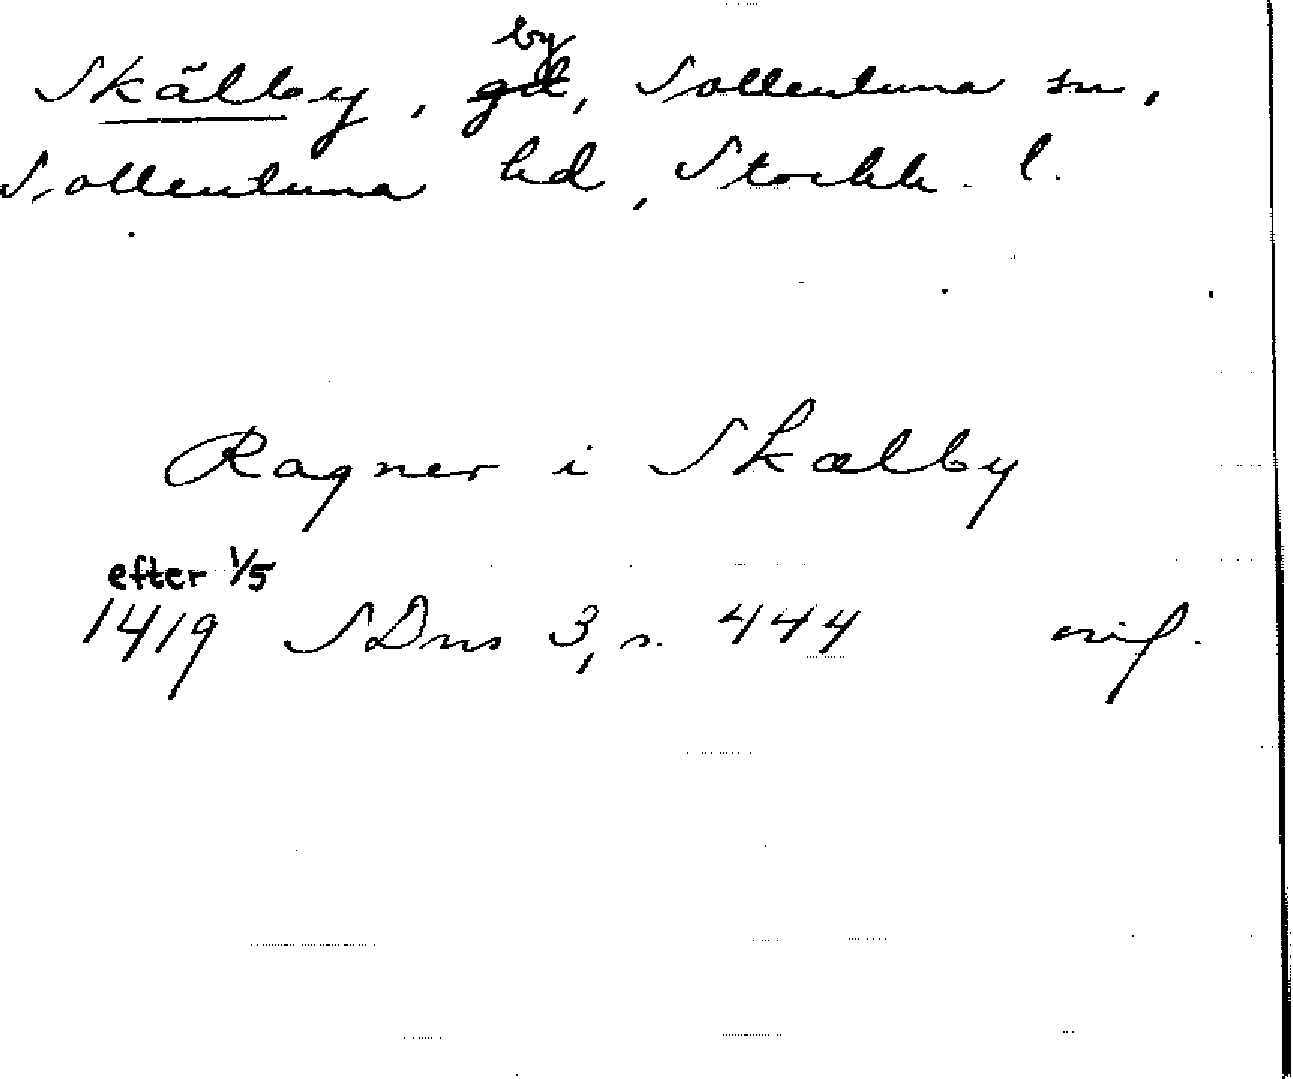 by
Skälby, gd, Sollentuna sn,
Sollentuna hd, Stockh. l.
Ragner i Skælby
efter 1/5
1419 SDns 3, s. 444 orig.